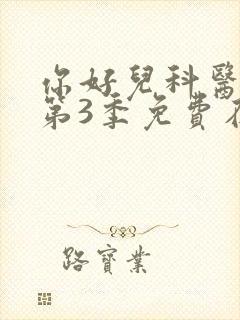 你好兒科醫
第3季免費在
路寶業